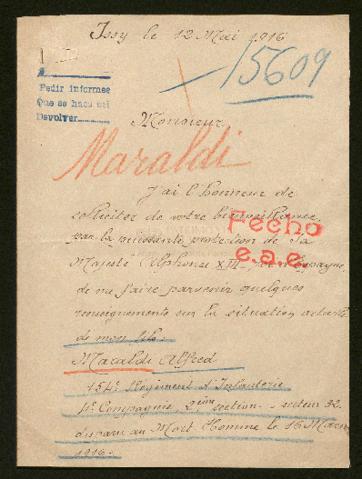 Issy le 12 Mai 1916
15609
Pedir informes
Que se haga mi
Devolver
Monsieur,
Maraldi
J'ai l'honneur de
solliciter de votre bienveillance,
Fecho
par la puissante protection de Sa
Majesté Alphonse XIII, Espagne,
e.a.e.
de me faire parvenir quelques
renseignements sur la situation actuelle
de mon fils.
Maraldi Alfred
154e Regiment d'Infanterie
4e Compagnie, 2ème section - secteur 92.
disparu au Mort Homme le 16 Mars
1916.